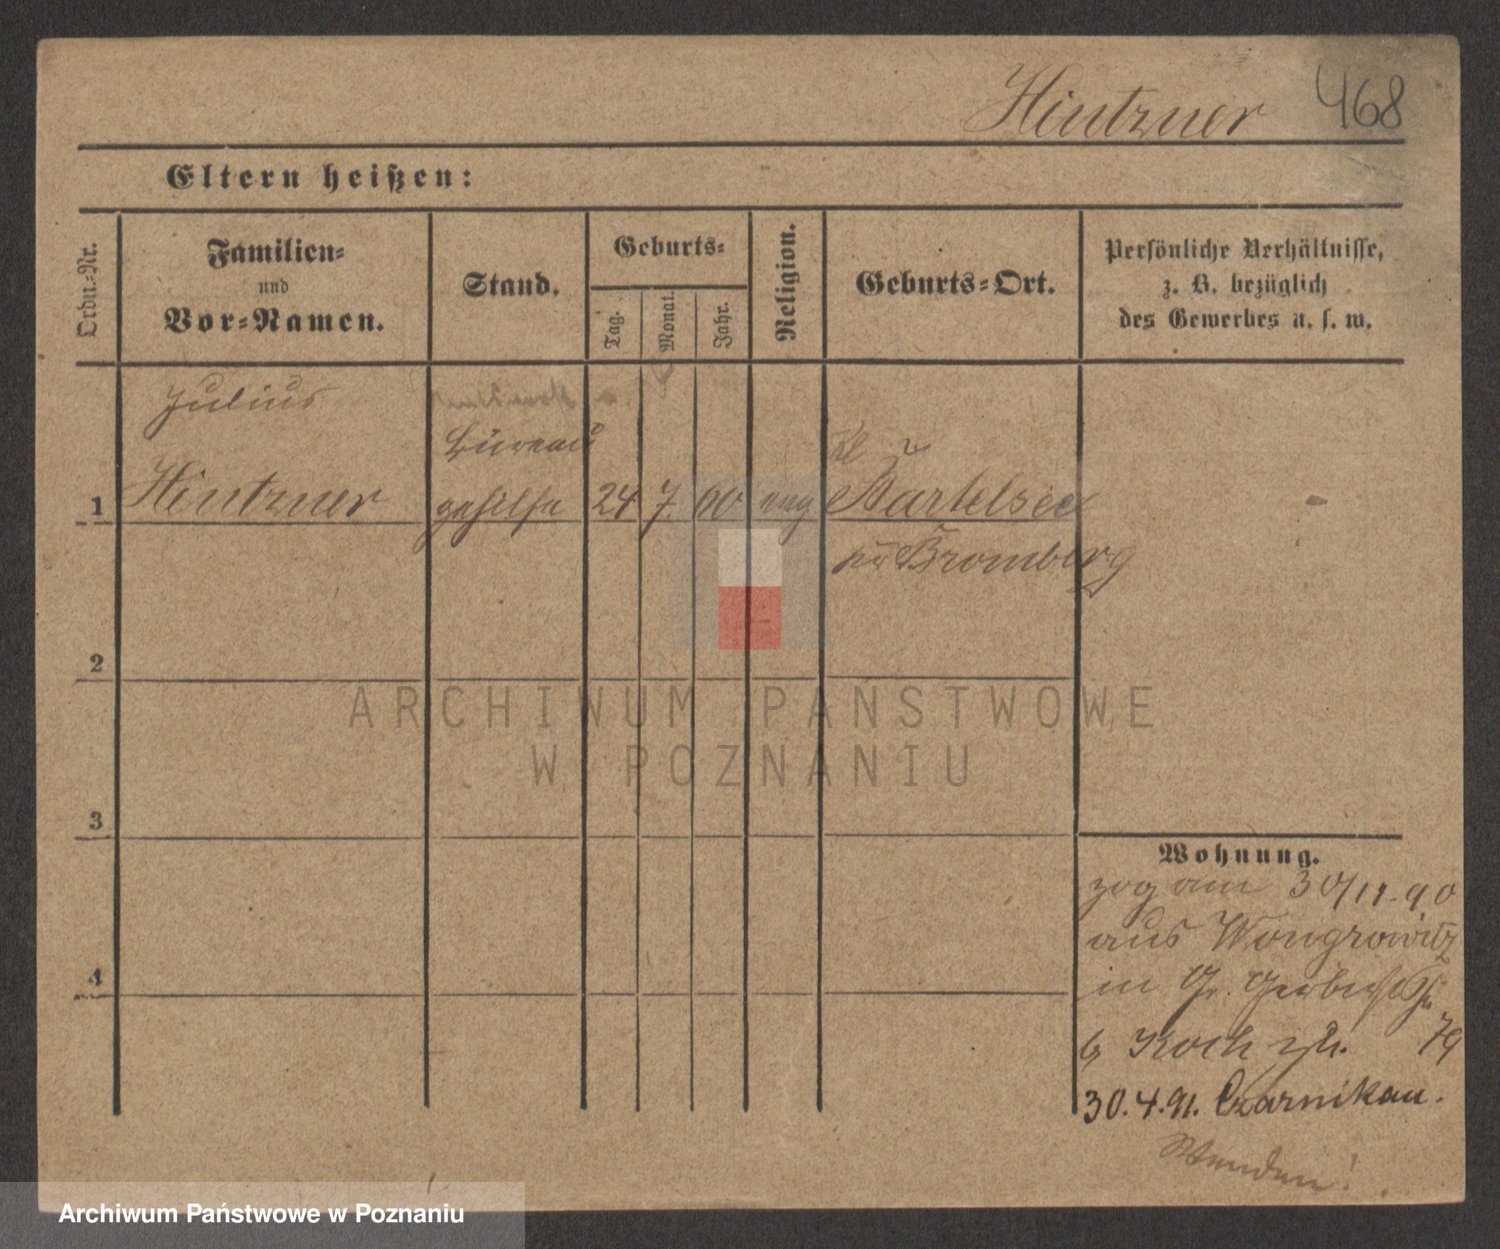 Hintzner 468
Eltern heißen:
Ordn.-Nr.
Familien-
und
Vor-Namen.
Stand.
Geburts-
Tag.
Monat.
Jahr.
Religion.
Geburts-Ort.
Persönliche Verhältnisse,
z. B. bezüglich
des Gewerbes u. s. w.
Julius
Büreau
Kl
1 Hintzner gehilfe 24 7. 60 evg Bartelsee
Bromberg
2
ARCHIWUM PAŃSTWOWE
W POZNANIU
3
Wohnung.
zog am 30/11.90
aus Wongrowitz
in Gr. Gerberstr
79
b Koch zu.
30.4.91. Czarnikau.
4
Wenden!
Archiwum Państwowe w Poznaniu